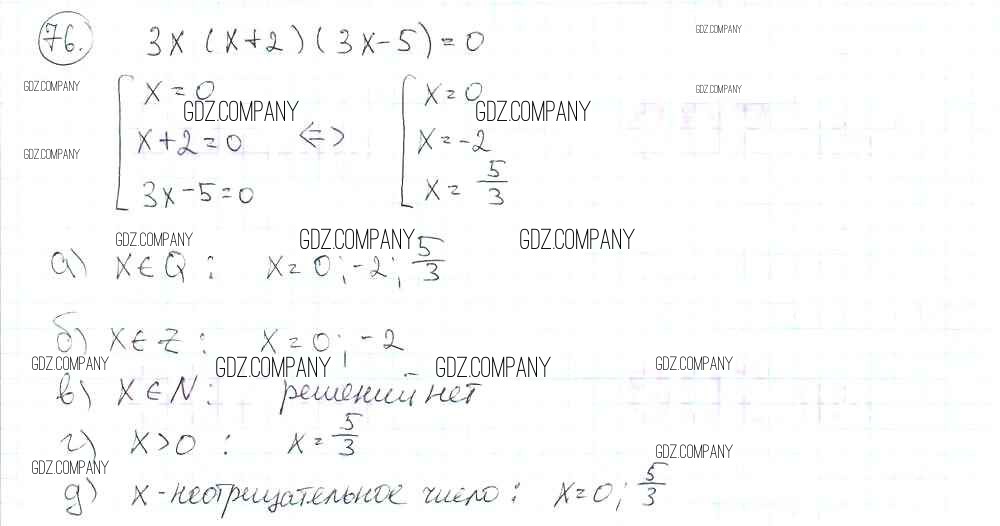 76. 3x (x+2)(3x-5)=0
GDZ.COMPANY
GDZ.COMPANY
x=0
x=0
GDZ.COMPANY
GDZ.COMPANY
GDZ.COMPANY
x+2=0 <=> x=-2
GDZ.COMPANY
3x-5=0
x= 5/3
GDZ.COMPANY
GDZ.COMPANY
GDZ.COMPANY
а) x∈Q : x=0; -2; 5/3
б) x∈Z : x=0; -2
GDZ.COMPANY
GDZ.COMPANY
GDZ.COMPANY
GDZ.COMPANY
в) x∈N : решений нет
г) x>0 : x= 5/3
GDZ.COMPANY
GDZ.COMPANY
д) x-неотрицательное число: x=0; 5/3